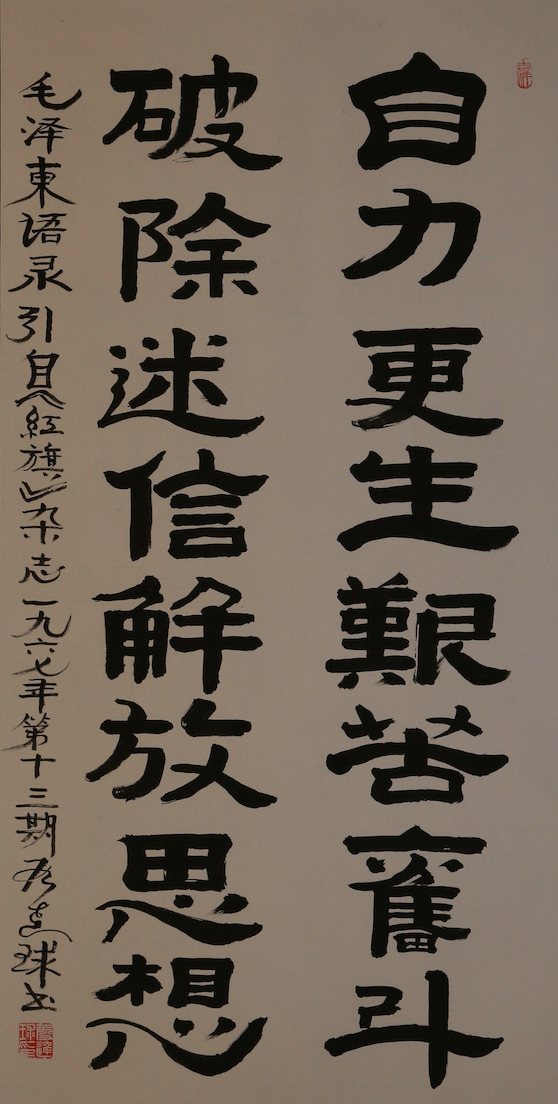 自力更生艱苦奮斗
破除迷信解放思想
毛泽東语录引自《紅旗》杂志一九六七年第十三期球书